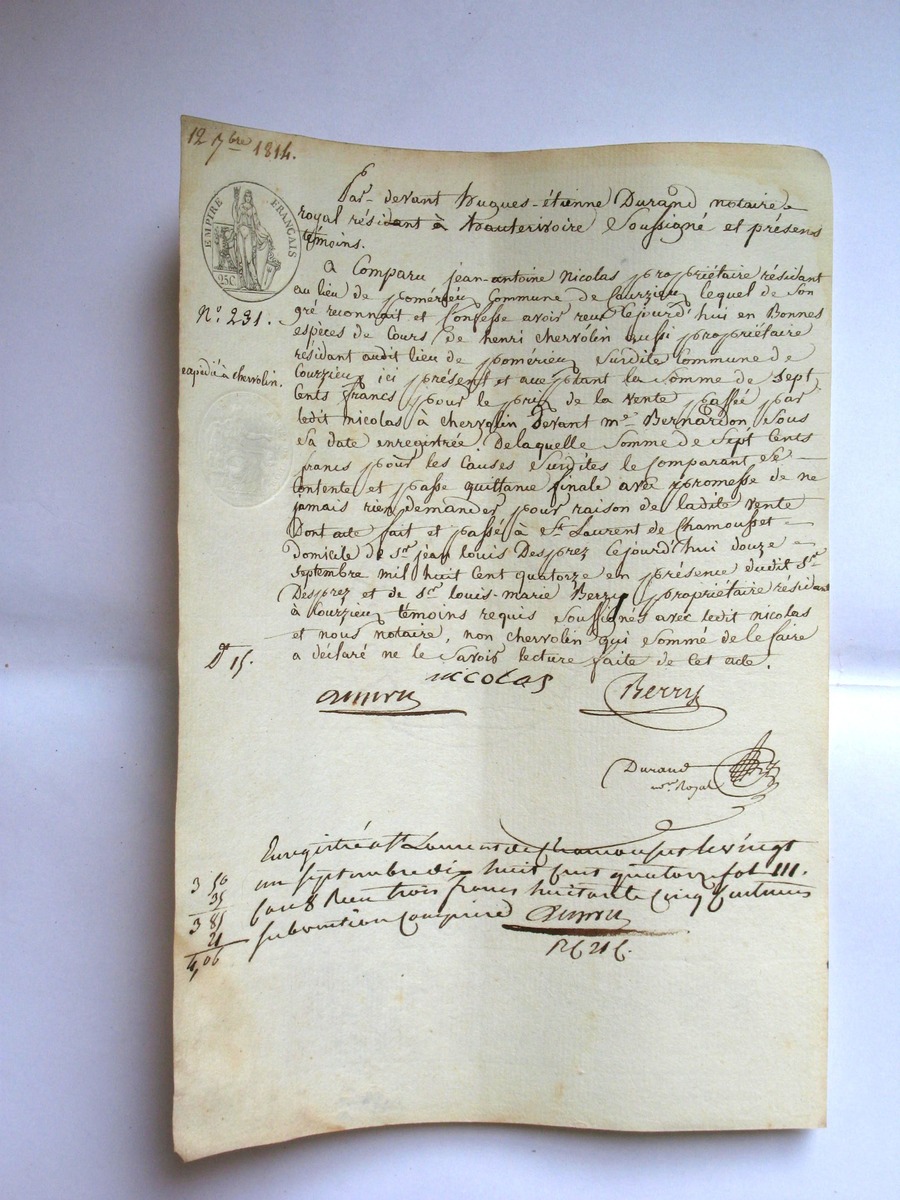 12 7bre 1814.
EMPIRE FRANÇAIS
25C
Par-devant hugues-étienne Durand notaire
royal résidant à hauterivoire Soussigné et présens
témoins.
a Comparu jean-antoine Nicolas propriétaire résidant
au lieu de pomérieu Commune de Courzieu lequel de Son
gré reconnait et Confesse avoir reçu Cejourd'hui en Bonnes
Nº 231.
espèces de Cours de henri Chervolin aussi propriétaire
résidant audit lieu de pomérieu Surdite Commune de
expédié à chervolin.
Courzieu ici présent et acceptant la Somme de Sept
Cents francs pour le prix de la vente passée par
ledit nicolas à Chervolin Devant me Bernardon Sous
Sa date enregistrée. delaquelle Somme de Sept Cents
francs pour les Causes Surdites le Comparant Se
Contente et passe quittance finale avec promesse de ne
jamais rien demander pour raison de ladite vente
Dont acte fait et passé à St Laurent de Chamousset
domicile de Sr jean louis Desprez Cejourd'hui douze
Septembre mil huit Cent quatorze en présence dudit Sr
Desprez et de Sr louis-marie Berry propriétaire résidant
à Courzieu témoins requis Soussignés avec ledit nicolas
et nous notaire, non Chervolin qui Sommé de le faire
Dt 15.
a déclaré ne le Savoir lecture faite de Cet acte.
nicolas
Berry
Durand
nre Royal
Enregistré a St Laurent de Chamousset le vingt
un Septembre dix huit cent quatorze fol 111.
Case 8 Reçu trois francs huitante Cinq Centimes
Subvention Comprise
3 50
35
3 85
21
4,06